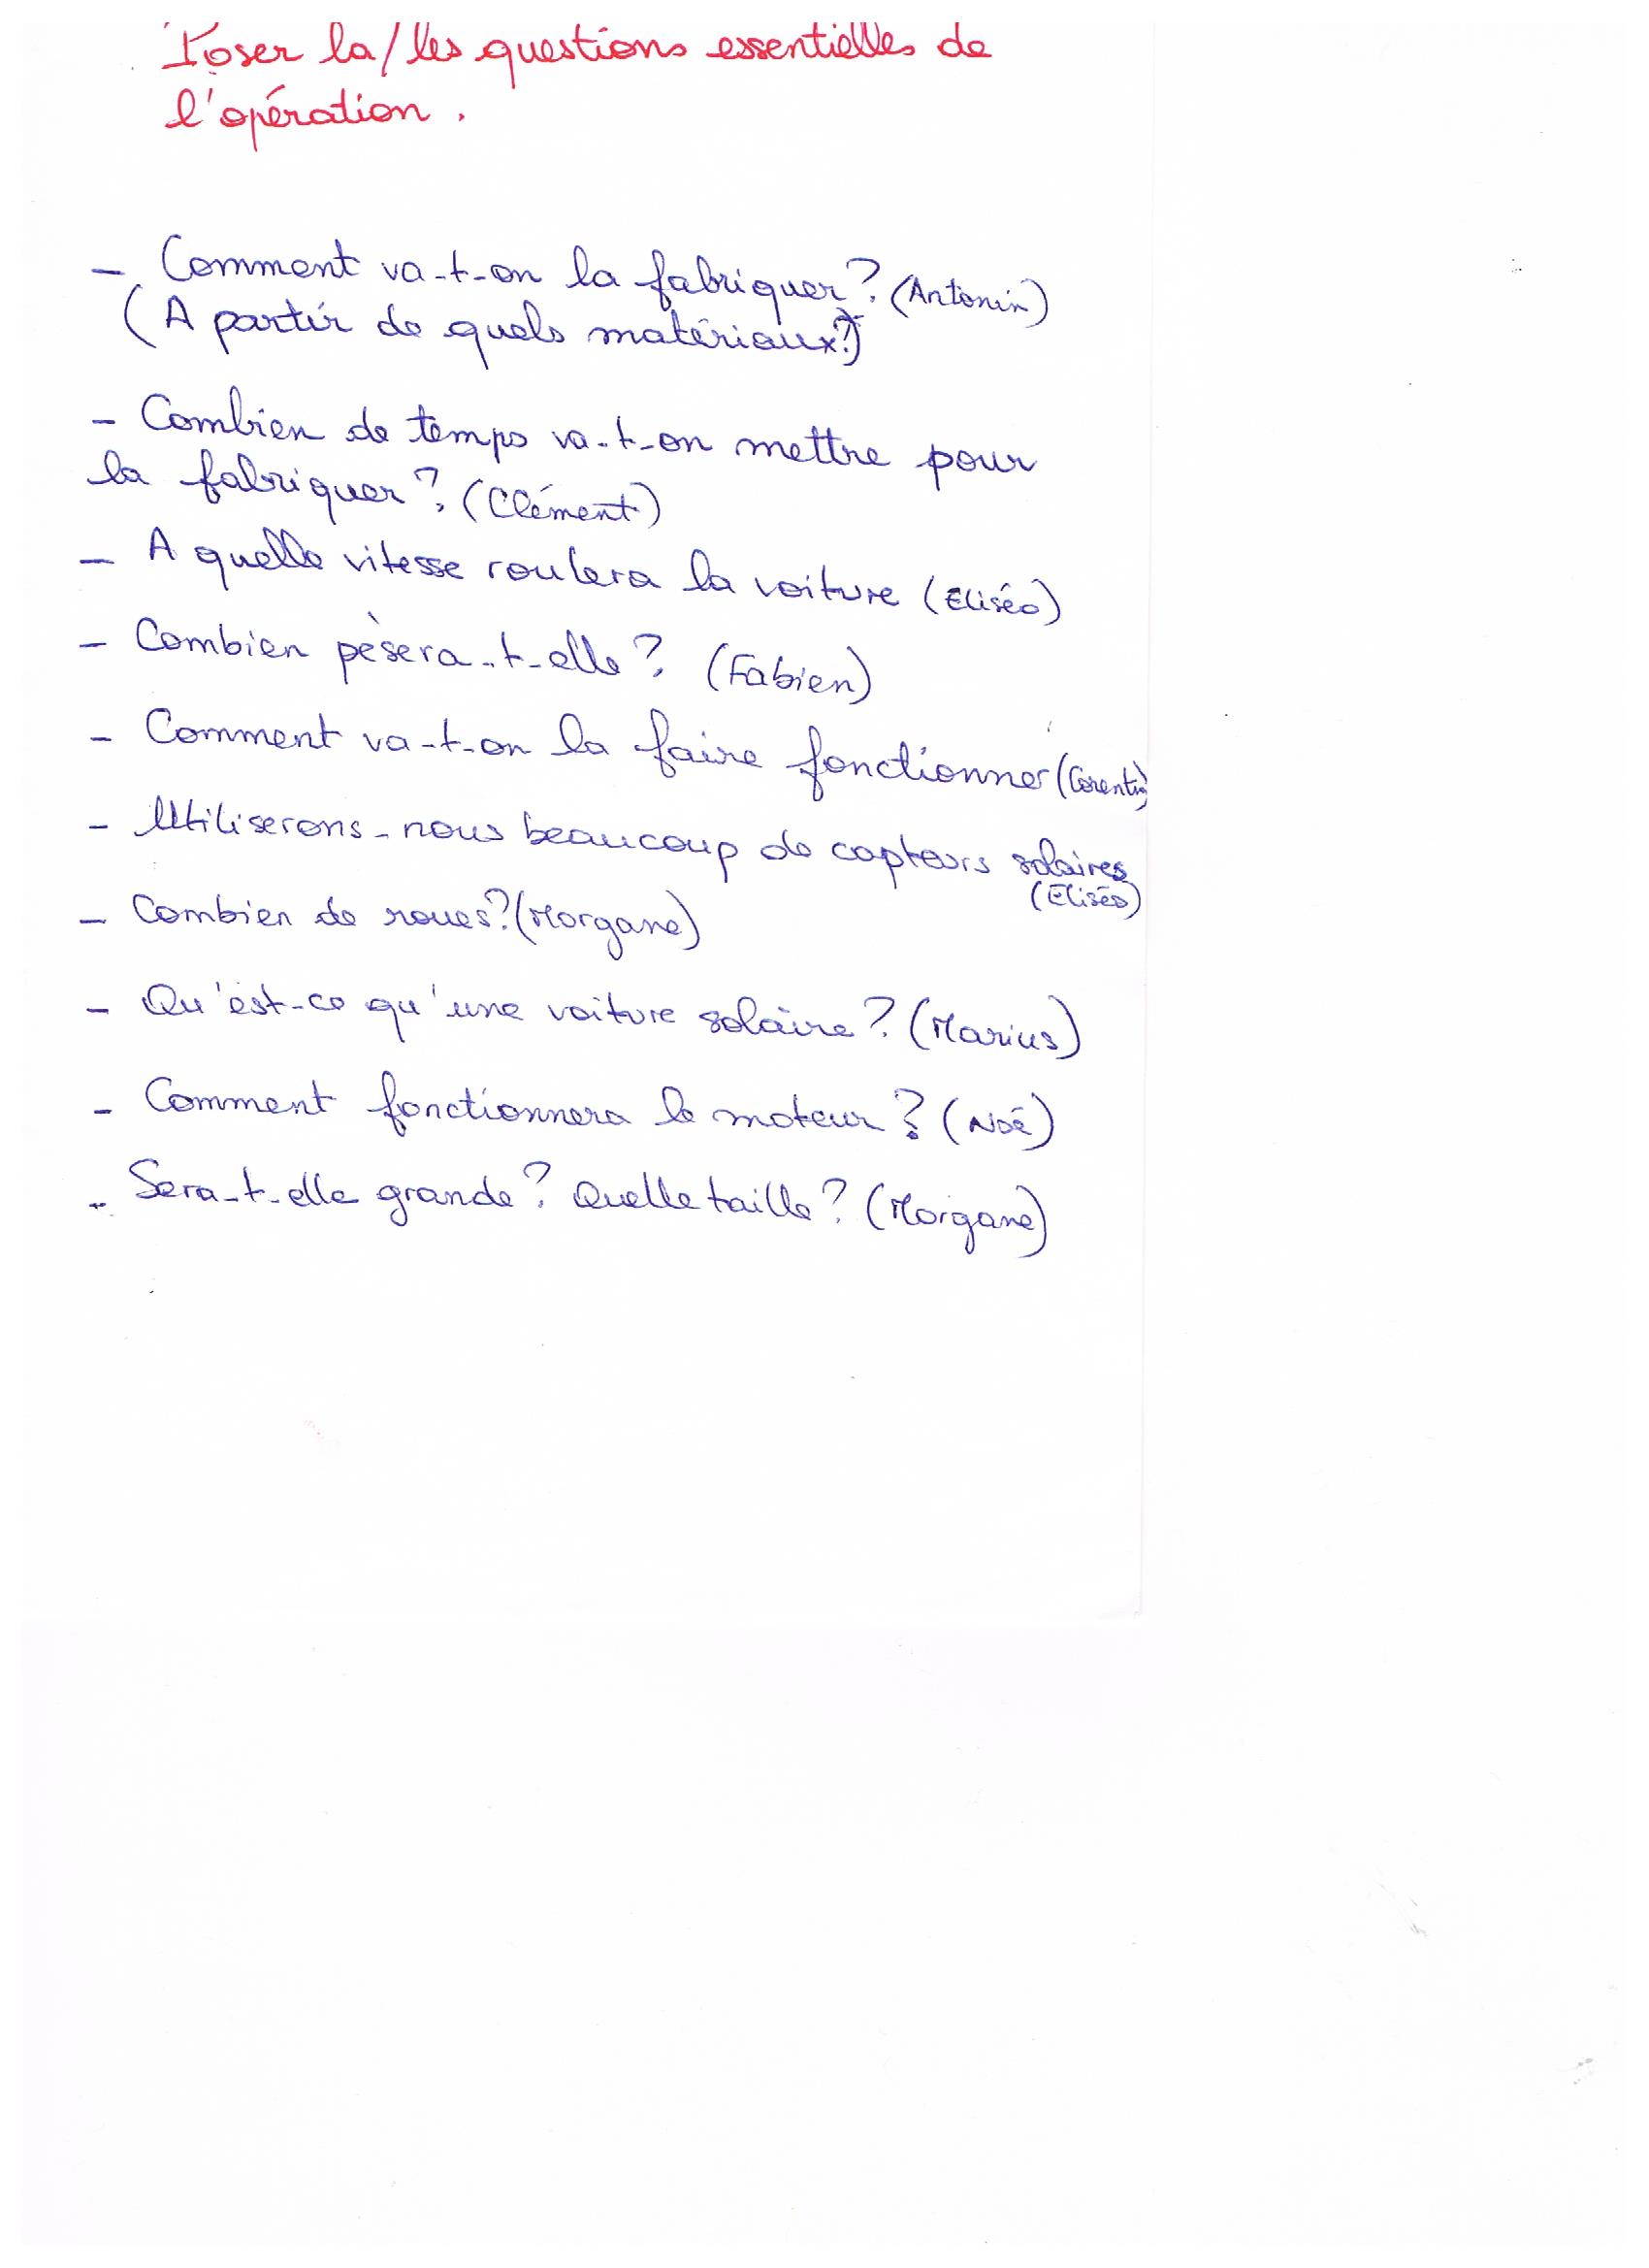 Poser la/les questions essentielles de
l'opération.
- Comment va-t-on la fabriquer? (Antonin)
(A partir de quels matériaux?)
- Combien de temps va-t-on mettre pour
la fabriquer? (Clément)
- A quelle vitesse roulera la voiture (Eliséo)
- Combien pèsera-t-elle? (Fabien)
- Comment va-t-on la faire fonctionner (Corentin)
- Utiliserons-nous beaucoup de capteurs solaires
(Eliséo)
- Combien de roues? (Morgane)
- Qu'est-ce qu'une voiture solaire? (Marius)
- Comment fonctionnera le moteur? (Noé)
- Sera-t-elle grande? Quelle taille? (Morgane)